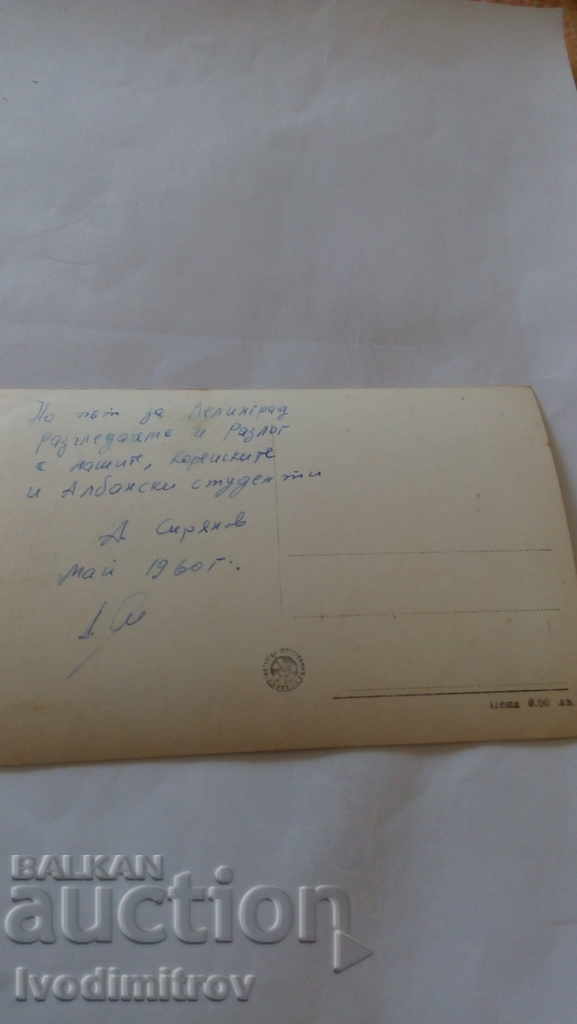 На път за Велинград
разгледахме и Разлог
с нашите, корейските
и Албански студенти
А Сирянов
май 1960 г.
Цена 0.50 лв.
BALKAN
auction
Ivodimitrov